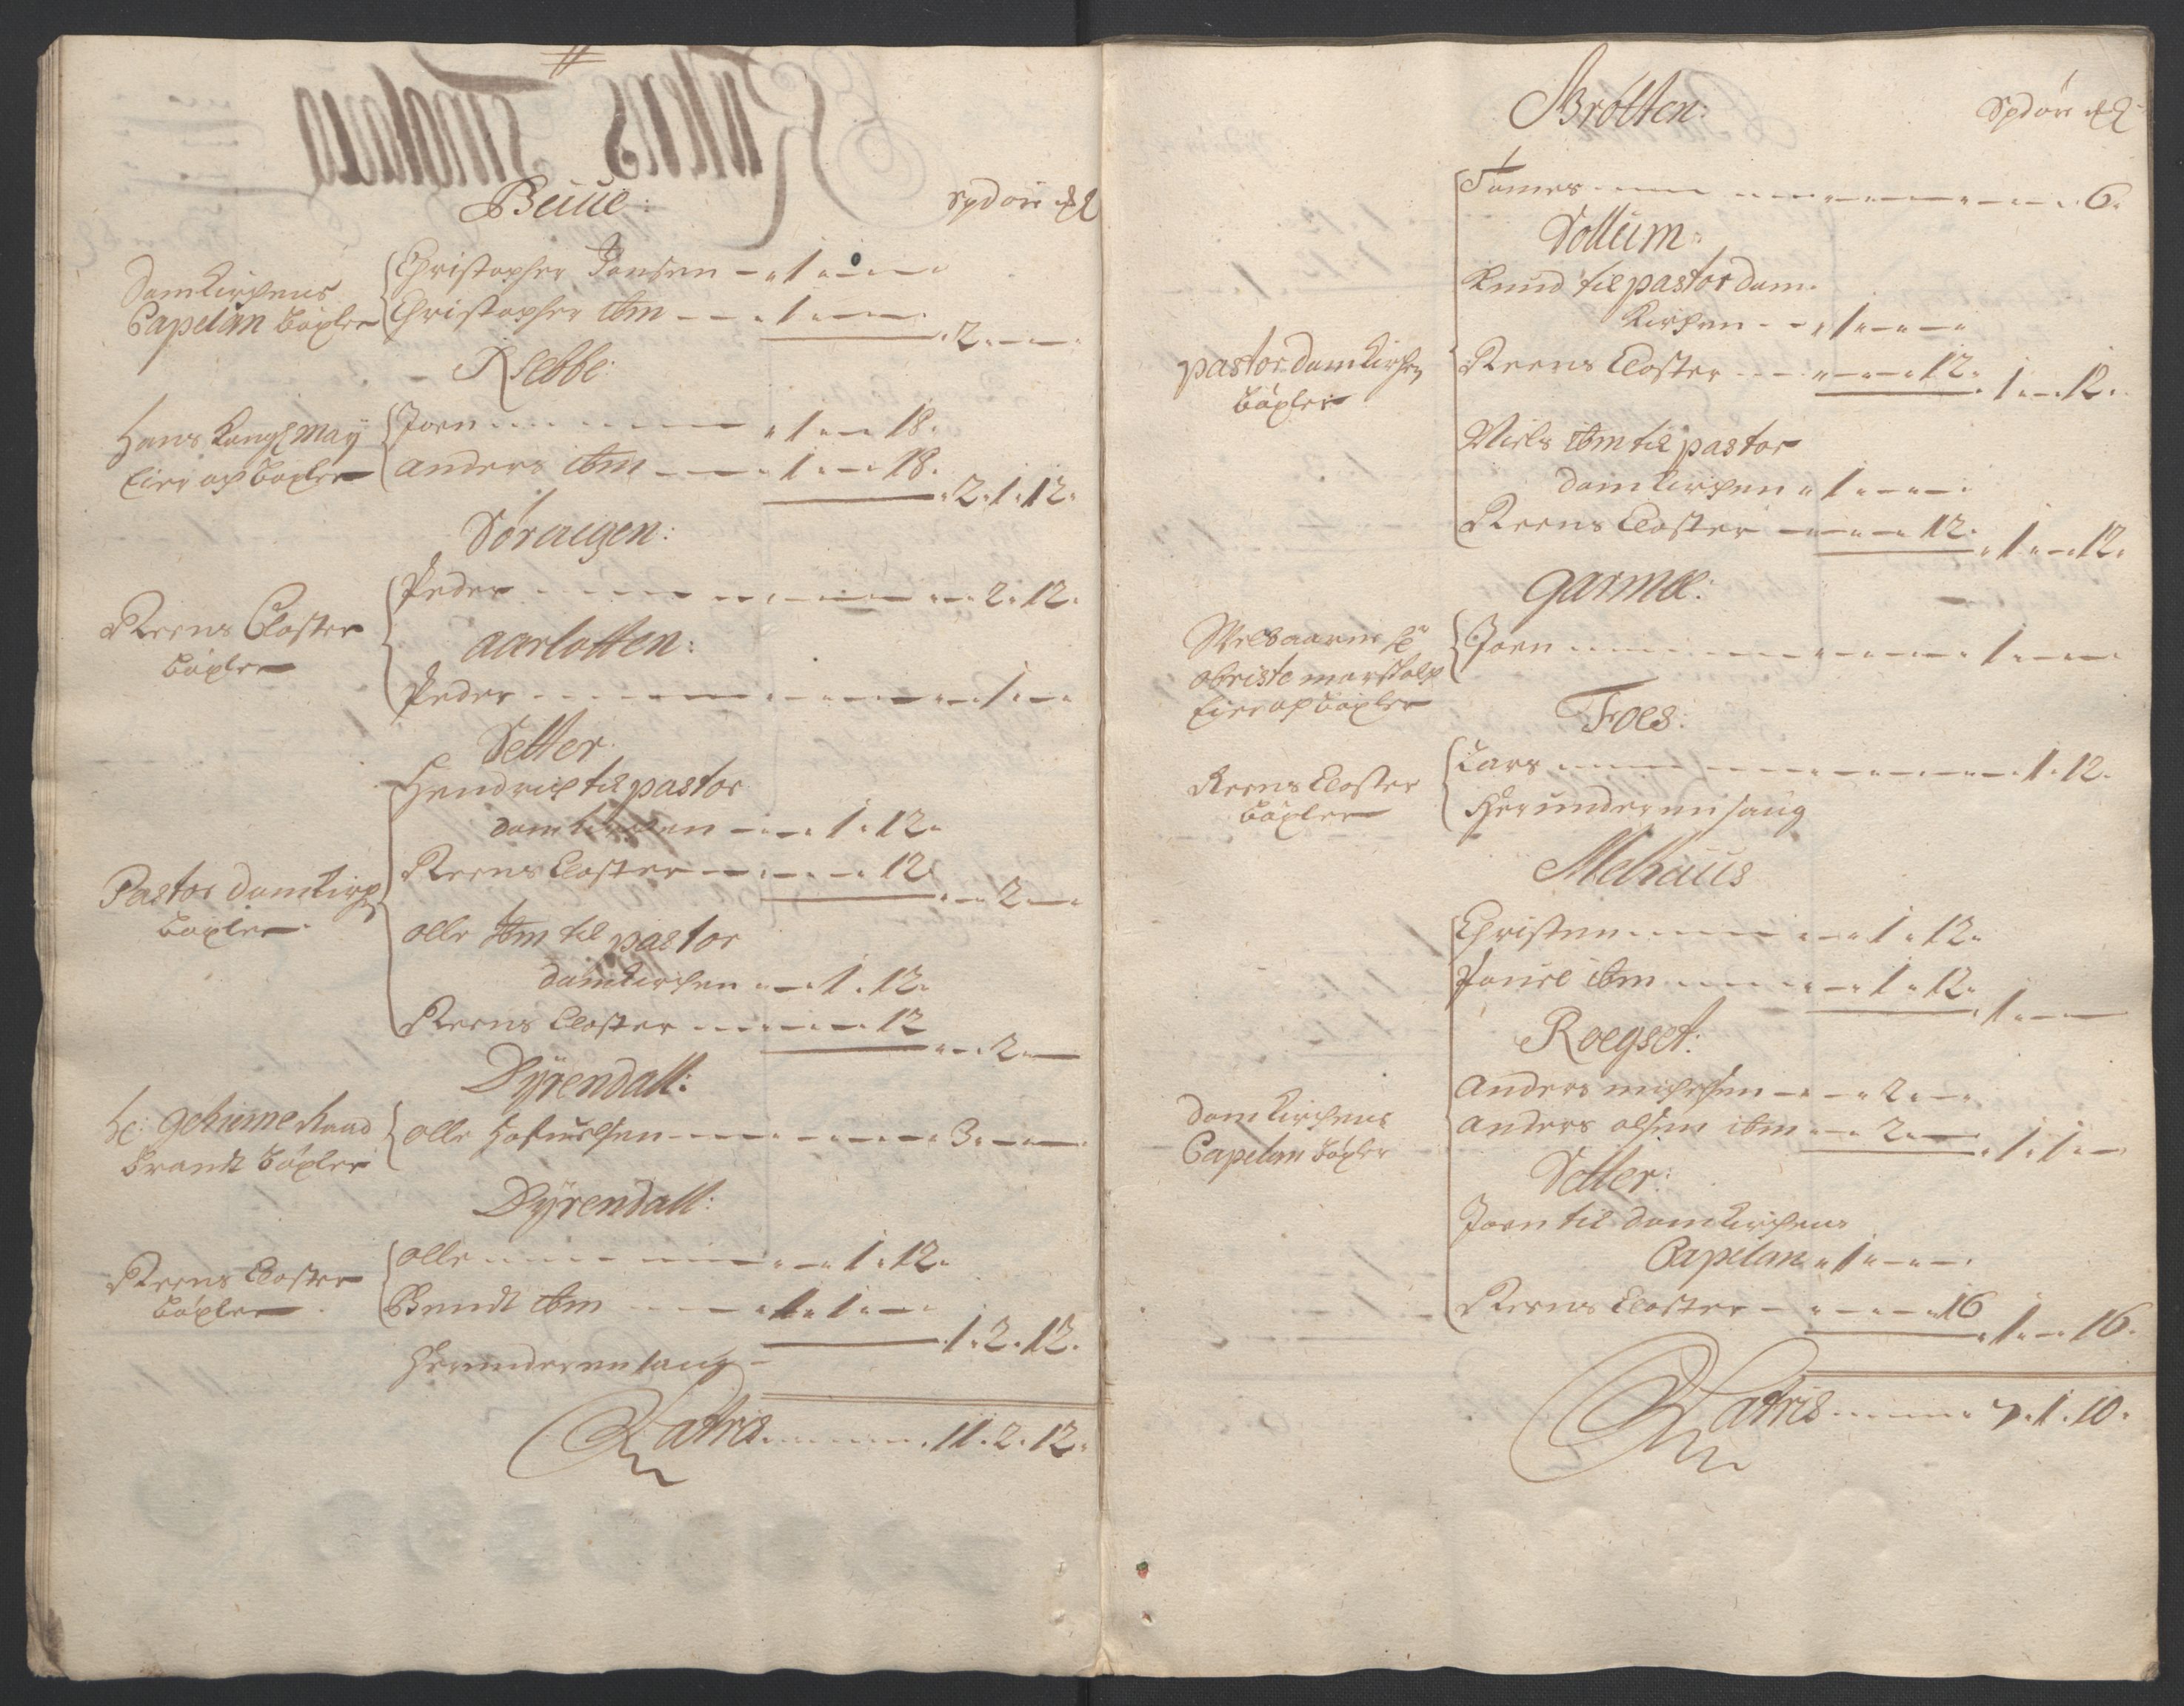 Beüüe:
Spd ort ℔
Domkirchens
Capelan böxler
Christopher Jonsen - - 1 - - -
Christopher ibm - - - 1 - - -
2 - - -
Rebbe:
Hans Kongl May
Eier og böxler
Joen - - - - - 1 - - 18.
Anders ibm - - - - 1 - - 18.
2. 1. 12.
Söraigen:
Reens Closter
böxler
Peder - - - - - - - - 2. 12.
aarlotten:
Peder - - - - - - - - 1 - -
Setter
Pastor domkirchen
böxler
Hendrich til pastor
domkirchen - - - 1. 12.
Reens Closter - - - - - 12
- - 2 - -
olle ibm til pastor
domkirchen - - - 1. 12.
Reens Closter - - - - - 12
- - 2 - -
Dÿrendall:
Hr: Geheime Raad
Brandt böxler
olle - - - - - - - - 3 - - -
Dÿrendall:
Reens Closter
böxler
olle - - - - - - - 1. 12.
Bendt ibm - - - 1. 1. - -
1. 2. 12.
Herunder en saug -
Latris - - - - - - 11. 2. 12.
Brötten:
Spd ort ℔
Tomes - - - - - - - - - - 6.
Sollüm:
pastor domkirchen
böxler
Knud til pastor dom-
kirchen - - - 1 - - - -
Reens Closter - - - - - - 12.
1 - - 12.
Niels ibm til pastor
domkirchen - 1 - - - -
Reens Closter - - - - - 12.
1 - - 12.
garmæ:
Welbaarne Hr
obriste
Eier og böxler
Joen - - - - - - - - - 1 - - -
Foes:
Reens Closter
böxler
Lars - - - - - - - - - - 1. 12.
Herunder en saug
Melhuus
Christen - - - - - - - 1. 12.
Pouel ibm - - - - - - - 1. 12.
1 - - -
Roegset:
Domkirchens
Capelan böxler
Anders - - - - 2 - - -
Anders olsen ibm - - 2 - - -
1. 1. -
Setter:
Joen til domkirchens
Capelan - 1 - - - -
Reens Closter - - - - - - 16
1 - - 16.
Latris - - - - - 7. 1. 10.